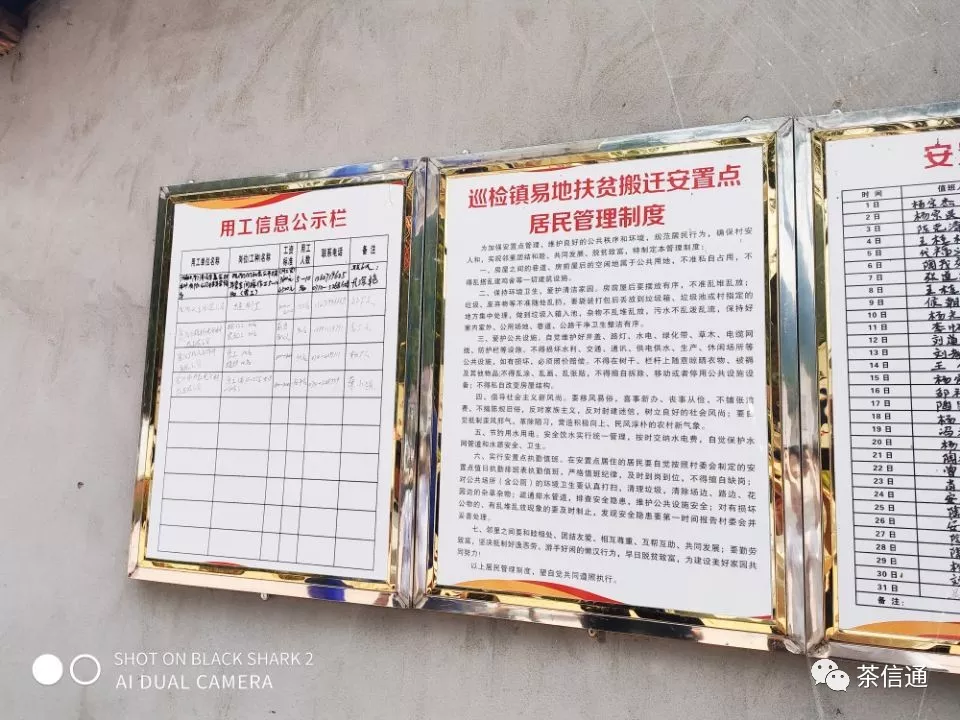 用工信息公示栏
用工单位名称 岗位(工种)名称 工资标准 用工人数 联系电话 备注
巡检镇易地扶贫搬迁安置点
居民管理制度
为加强安置点管理，维护良好的公共秩序和环境，规范居民行为，确保村安
人和，实现邻里团结和睦、共同发展、脱贫致富，特制定本管理制度：
一、房屋之间的巷道、房前屋后的空闲地属于公共用地，不准私自占用，不
得乱搭乱建鸡舍等一切建筑设施。
二、保持环境卫生，爱护清洁家园。房前屋后要摆放有序，不准乱堆乱放；
垃圾，废弃物等不准随地乱扔，要袋装打包后丢放到垃圾箱、垃圾池或村指定的
地方集中处理，做到垃圾入箱入池，杂物不乱堆乱放，污水不乱泼乱流，保持好
室内室外、公用场地、巷道、公路干净卫生整洁有序。
三、爱护公共设施。自觉维护好井盖、路灯、水电、绿化带、草木、电缆网
线、防护栏等设施，不得损坏水利、交通、通讯、供电供水、生产、休闲场所等
公共设施，如有损坏，必须照价赔偿。不得在树干、栏杆上随意晾晒衣物、被褥
及其他物品；不得乱涂、乱画、乱张贴，不得擅自拆除、移动或者停用公共设施设
备；不得私自改变房屋结构。
四、倡导社会主义新风尚。要移风易俗，喜事新办、丧事从俭，不铺张浪
费、不搞陈规旧俗，反对家族主义，反对封建迷信，树立良好的社会风尚；要自
觉抵制歪风邪气、革除陋习，营造积极向上、民风淳朴的农村新气象。
五、节约用水用电。安全饮水实行统一管理，按时交纳水电费，自觉保护水
网管道和水源安全、卫生。
六、实行安置点执勤值班。在安置点居住的居民要自觉按照村委会制定的安
置点值日执勤排班表执勤值班，严格值班纪律，及时到岗到位，不得擅自缺岗；
对公共场所（含公厕）的环境卫生要认真打扫，清理垃圾，清除场边、路边、花
园边的杂草杂物；疏通排水管道，排查安全隐患，维护公共设施安全；对有损坏
公物的、有乱堆乱放现象的要及时制止，发现安全隐患要第一时间报告村委会并
妥善处理。
七、邻里之间要和睦相处、团结友爱、相互尊重、互帮互助、共同发展；要勤劳
致富，坚决抵制好逸恶劳、游手好闲的懒汉行为，早日脱贫致富，为建设美好家园共
同努力！
以上居民管理制度，望自觉共同遵照执行。
安
时间 值班人
1日
2日
3日
4日
5日
6日
7日
8日
9日
10日
11日
12日
13日
14日
15日
16日
17日
18日
19日
20日
21日
22日
23日
24日
25日
26日
27日
28日
29日
30日
31日
备注：
SHOT ON BLACK SHARK 2
AI DUAL CAMERA
茶信通